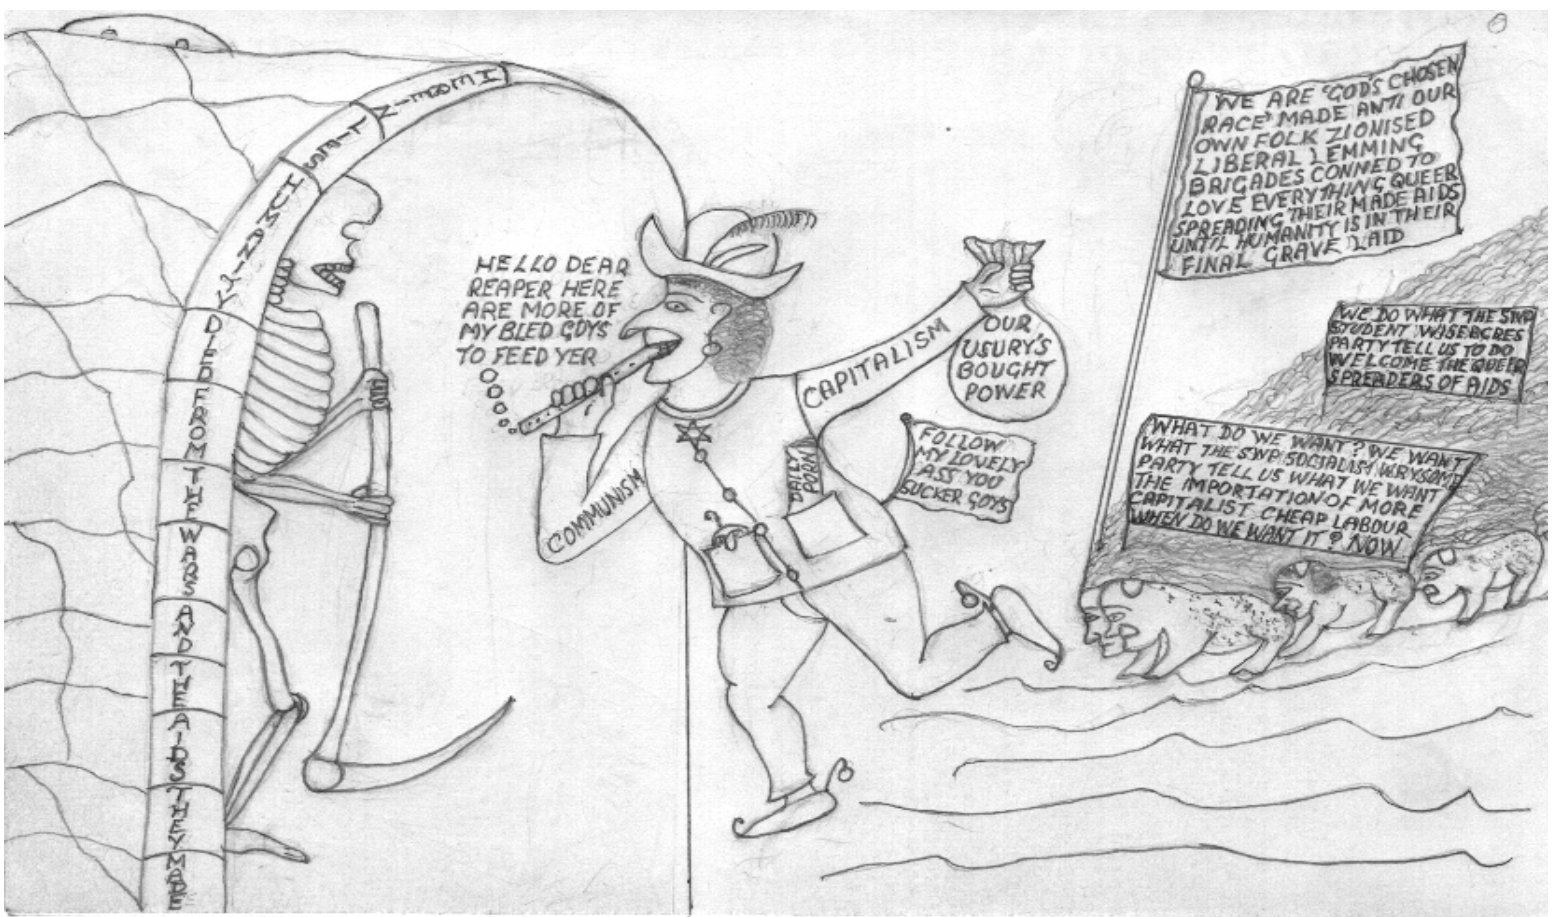 HERE IN
LIES
HUMANITY
DIED
FROM
THE
WARS
AND
THE
AIDS
THEY
MADE
HELLO DEAR
REAPER HERE
ARE MORE OF
MY BLED GOYS
TO FEED YER
COMMUNISM
CAPITALISM
OUR
USURY'S
BOUGHT
POWER
DAILY
PORN
FOLLOW
MY LOVELY
ASS YOU
SUCKER GOYS
WE ARE 'GOD'S CHOSEN
RACE' MADE ANTI OUR
OWN FOLK ZIONISED
LIBERAL LEMMING
BRIGADES CONNED TO
LOVE EVERYTHING QUEER
SPREADING THEIR MADE AIDS
UNTIL HUMANITY IS IN THEIR
FINAL GRAVE LAID
WE DO WHAT THE SWP
STUDENT WISEACRES
PARTY TELL US TO DO
WELCOME THE QUEER
SPREADERS OF AIDS
WHAT DO WE WANT? WE WANT
WHAT THE SWP SOCIALISM
PARTY TELL US WHAT WE WANT
THE IMPORTATION OF MORE
CAPITALIST CHEAP LABOUR
WHEN DO WE WANT IT? NOW